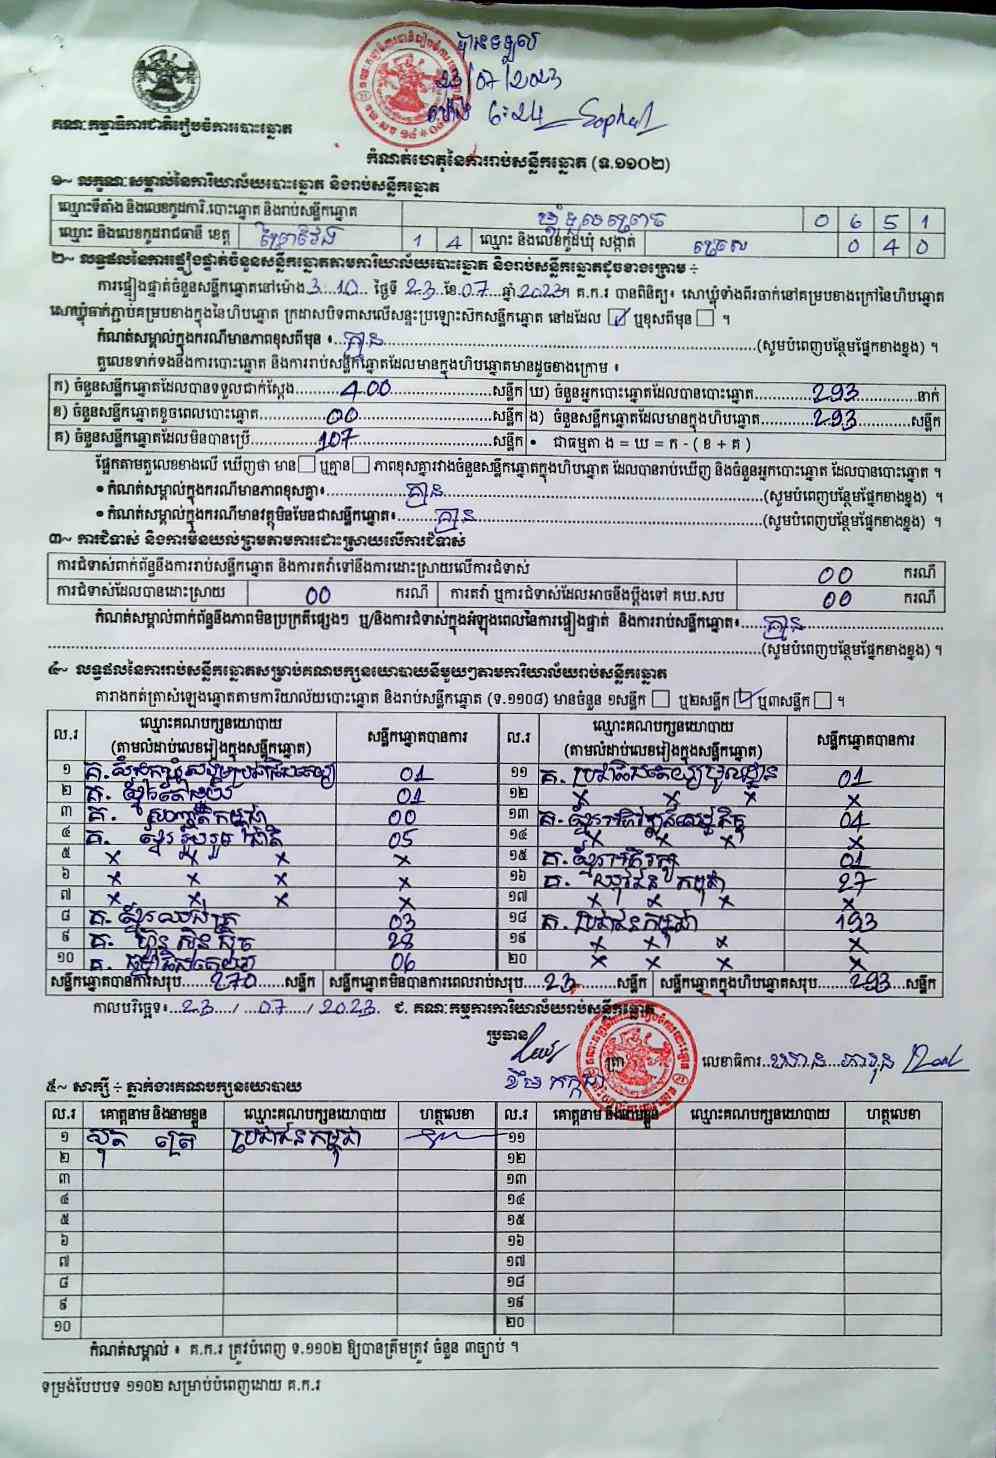 បានទទួល
23/07/2023
ម៉ោង 6:24 Sophal
គណៈកម្មាធិការជាតិរៀបចំការបោះឆ្នោត
កំណត់ហេតុនៃការរាប់សន្លឹកឆ្នោត (ទ.១១០២)
១~ លក្ខណៈសម្គាល់នៃការិយាល័យបោះឆ្នោត និងរាប់សន្លឹកឆ្នោត
ឈ្មោះទីតាំង និងលេខកូដការិ.បោះឆ្នោត និងរាប់សន្លឹកឆ្នោត 0 6 5 1
ឈ្មោះ និងលេខកូដរាជធានី ខេត្ត ព្រៃវែង 1 4 ឈ្មោះ និងលេខកូដឃុំ សង្កាត់ 0 4 0
២~ លទ្ធផលនៃការផ្ទៀងផ្ទាត់ចំនួនសន្លឹកឆ្នោតតាមការិយាល័យបោះឆ្នោត និងរាប់សន្លឹកឆ្នោតដូចខាងក្រោម ÷
ការផ្ទៀងផ្ទាត់ចំនួនសន្លឹកឆ្នោតនៅម៉ោង 3:10 ថ្ងៃទី 23 ខែ 07 ឆ្នាំ 2023។ គ.ក.រ បានពិនិត្យ៖ សោឃ្លុំទាំងពីរចាក់នៅគម្របខាងក្រៅនៃហិបឆ្នោត
សោឃ្លុំចាក់ភ្ជាប់គម្របខាងក្នុងនៃហិបឆ្នោត ក្រដាសបិទពាសលើសន្ទះប្រឡោះសិកសន្លឹកឆ្នោត នៅដដែល ✓ ឬខុសពីមុន ។
កំណត់សម្គាល់ក្នុងករណីមានភាពខុសពីមុន ៖ គ្មាន (សូមបំពេញបន្ថែមផ្នែកខាងខ្នង) ។
តួលេខទាក់ទងនឹងការបោះឆ្នោត និងការរាប់សន្លឹកឆ្នោតដែលមានក្នុងហិបឆ្នោតមានដូចខាងក្រោម ៖
ក) ចំនួនសន្លឹកឆ្នោតដែលបានទទួលជាក់ស្តែង 400 សន្លឹក ឃ) ចំនួនអ្នកបោះឆ្នោតដែលបានបោះឆ្នោត 293 នាក់
ខ) ចំនួនសន្លឹកឆ្នោតខូចពេលបោះឆ្នោត 00 សន្លឹក ង) ចំនួនសន្លឹកឆ្នោតដែលមានក្នុងហិបឆ្នោត 293 សន្លឹក
គ) ចំនួនសន្លឹកឆ្នោតដែលមិនបានប្រើ 107 សន្លឹក • ជាធម្មតា ង = ឃ = ក - ( ខ + គ )
ផ្អែកតាមតួលេខខាងលើ ឃើញថា មាន ឬគ្មាន ភាពខុសគ្នារវាងចំនួនសន្លឹកឆ្នោតក្នុងហិបឆ្នោត ដែលបានរាប់ឃើញ និងចំនួនអ្នកបោះឆ្នោត ដែលបានបោះឆ្នោត ។
• កំណត់សម្គាល់ក្នុងករណីមានភាពខុសគ្នា៖ គ្មាន (សូមបំពេញបន្ថែមផ្នែកខាងខ្នង) ។
• កំណត់សម្គាល់ក្នុងករណីមានវត្ថុមិនមែនជាសន្លឹកឆ្នោត៖ គ្មាន (សូមបំពេញបន្ថែមផ្នែកខាងខ្នង) ។
៣~ ការជំទាស់ និងការមិនយល់ព្រមតាមការដោះស្រាយលើការជំទាស់
ការជំទាស់ពាក់ព័ន្ធនឹងការរាប់សន្លឹកឆ្នោត និងការតវ៉ាទៅនឹងការដោះស្រាយលើការជំទាស់ 00 ករណី
ការជំទាស់ដែលបានដោះស្រាយ 00 ករណី ការតវ៉ា ឬការជំទាស់ដែលអាចនឹងប្តឹងទៅ គឃ.សប 00 ករណី
កំណត់សម្គាល់ពាក់ព័ន្ធនឹងភាពមិនប្រក្រតីផ្សេងៗ ឬ/និងការជំទាស់ក្នុងអំឡុងពេលនៃការផ្ទៀងផ្ទាត់ និងការរាប់សន្លឹកឆ្នោត៖ គ្មាន
(សូមបំពេញបន្ថែមផ្នែកខាងខ្នង) ។
៤~ លទ្ធផលនៃការរាប់សន្លឹកឆ្នោតសម្រាប់គណបក្សនយោបាយនីមួយៗតាមការិយាល័យរាប់សន្លឹកឆ្នោត
តារាងកត់ត្រាសំឡេងឆ្នោតតាមការិយាល័យបោះឆ្នោត និងរាប់សន្លឹកឆ្នោត (ទ.១១០៨) មានចំនួន ១សន្លឹក ឬ២សន្លឹក ✓ ឬ៣សន្លឹក ។
ល.រ ឈ្មោះគណបក្សនយោបាយ (តាមលំដាប់លេខរៀងក្នុងសន្លឹកឆ្នោត) សន្លឹកឆ្នោតបានការ ល.រ ឈ្មោះគណបក្សនយោបាយ (តាមលំដាប់លេខរៀងក្នុងសន្លឹកឆ្នោត) សន្លឹកឆ្នោតបានការ
១ 01 ១១ 01
២ គ. ខ្មែរតែមួយ 01 ១២ x x x x
៣ គ. 00 ១៣ 04
៤ គ. ខ្មែររួបរួមជាតិ 05 ១៤ x x x x
៥ x x x x ១៥ គ. ខ្មែរអភិរក្ស 01
៦ x x x x ១៦ គ. យុវជនកម្ពុជា 27
៧ x x x x ១៧ x x x x
៨ គ. 03 ១៨ គ. ប្រជាជនកម្ពុជា 193
៩ គ. ហ្វ៊ុនស៊ិនប៉ិច 28 ១៩ x x x x
១០ គ. 06 ២០ x x x x
សន្លឹកឆ្នោតបានការសរុប 270 សន្លឹក សន្លឹកឆ្នោតមិនបានការពេលរាប់សរុប 23 សន្លឹក សន្លឹកឆ្នោតក្នុងហិបឆ្នោតសរុប 293 សន្លឹក
កាលបរិច្ឆេទ៖ 23 / 07 / 2023 ជ. គណៈកម្មការការិយាល័យរាប់សន្លឹកឆ្នោត
ប្រធាន
ត្រា លេខាធិការ
៥~ សាក្សី ÷ ភ្នាក់ងារគណបក្សនយោបាយ
ល.រ គោត្តនាម និងនាមខ្លួន ឈ្មោះគណបក្សនយោបាយ ហត្ថលេខា ល.រ គោត្តនាម និងនាមខ្លួន ឈ្មោះគណបក្សនយោបាយ ហត្ថលេខា
១ ប្រជាជនកម្ពុជា ១១
២ ១២
៣ ១៣
៤ ១៤
៥ ១៥
៦ ១៦
៧ ១៧
៨ ១៨
៩ ១៩
១០ ២០
កំណត់សម្គាល់ ៖ គ.ក.រ ត្រូវបំពេញ ទ.១១០២ ឱ្យបានត្រឹមត្រូវ ចំនួន ៣ច្បាប់ ។
ទម្រង់បែបបទ ១១០២ សម្រាប់បំពេញដោយ គ.ក.រ